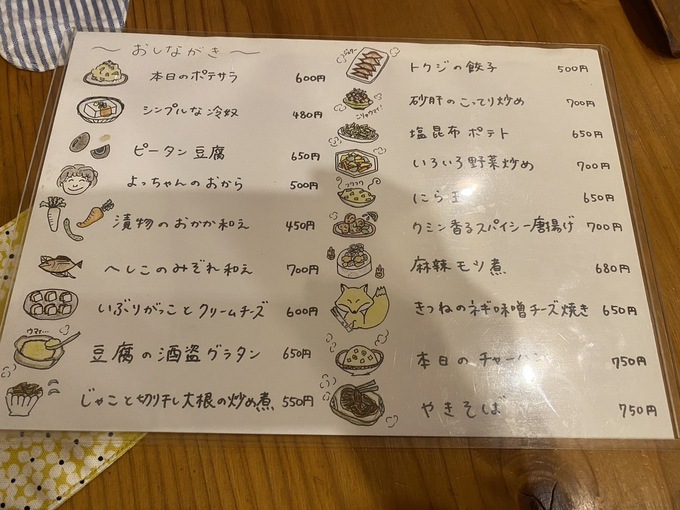 〜 おしながき 〜
本日のポテサラ 600円
シンプルな冷奴 480円
ピータン豆腐 650円
よっちゃんのおから 500円
漬物のおかか和え 450円
へしこのみぞれ和え 700円
いぶりがっことクリームチーズ 600円
ウマァ…
豆腐の酒盗グラタン 650円
じゃこと切り干し大根の炒め煮 550円
トクジの餃子 500円
砂肝のこってり炒め 700円
塩昆布ポテト 650円
いろいろ野菜炒め 700円
にら玉 650円
クミン香るスパイシー唐揚げ 700円
麻辣モツ煮 680円
きつねのネギ味噌チーズ焼き 650円
本日のチャーハン 750円
やきそば 750円